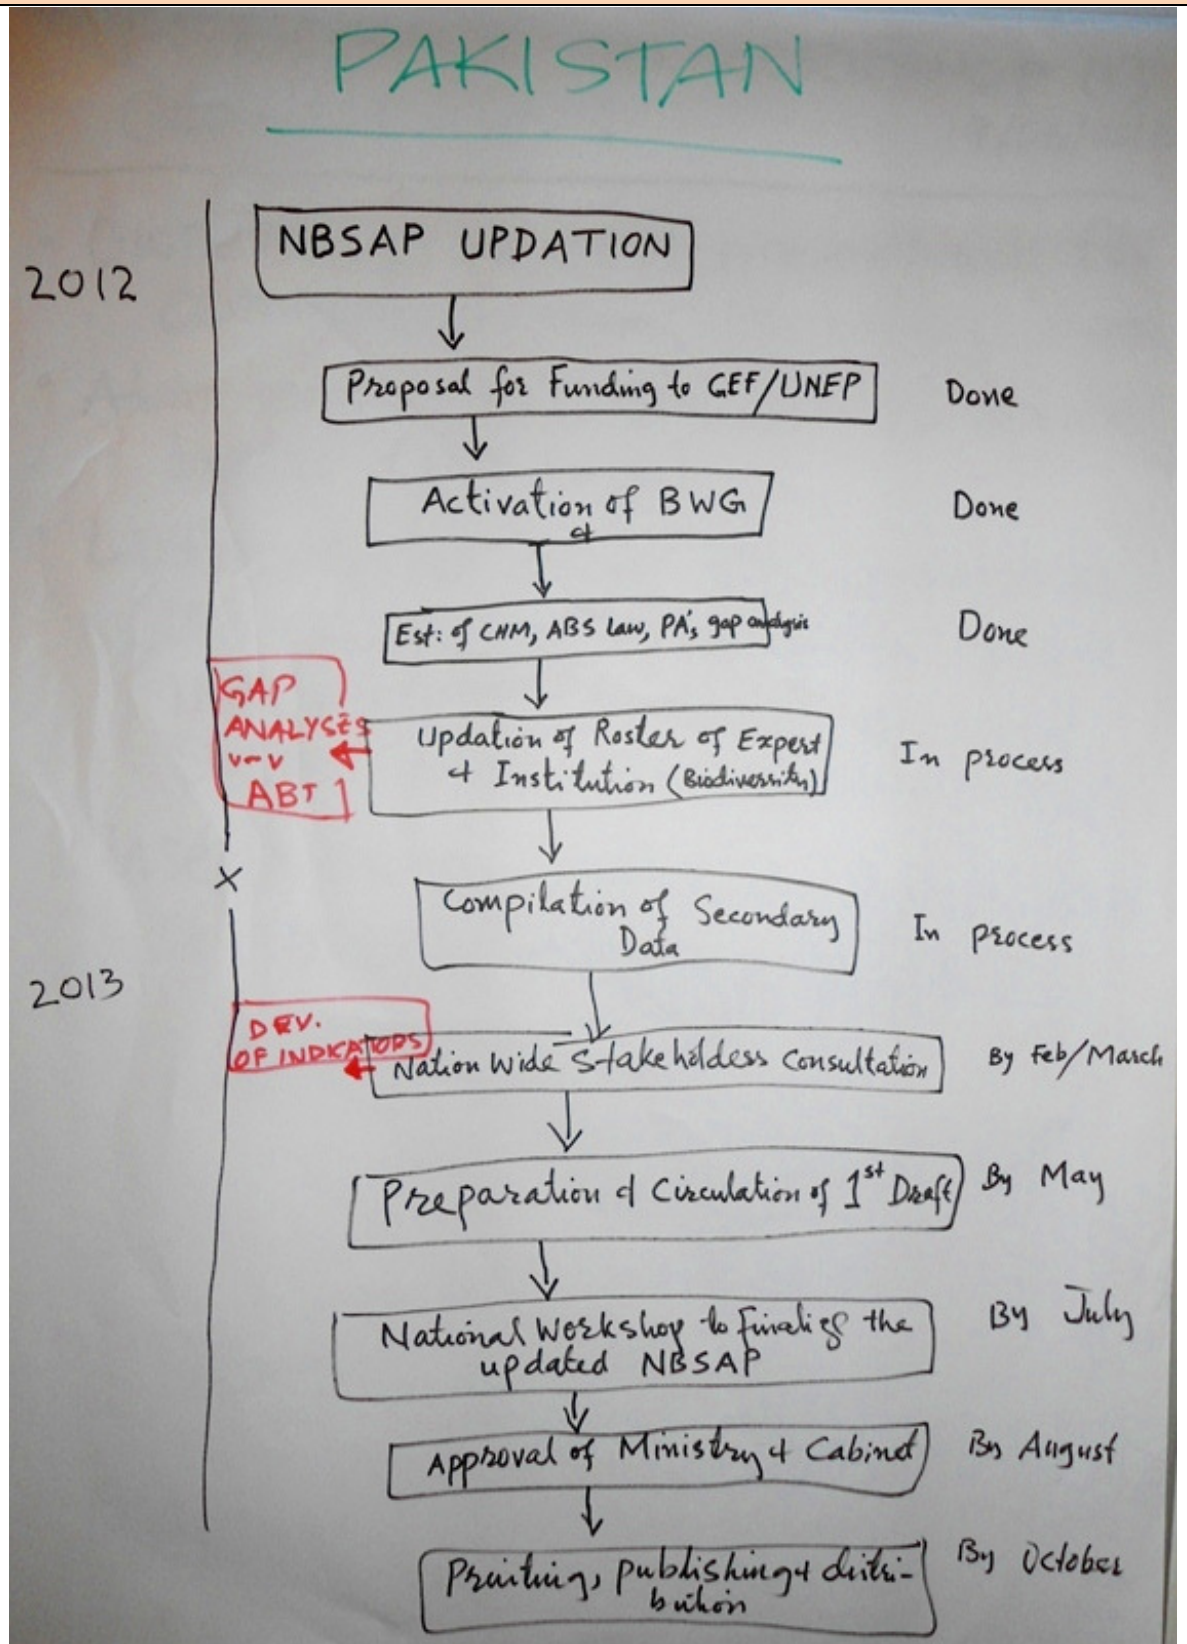 PAKISTAN
2012
NBSAP UPDATION
Proposal for Funding to GEF/UNEP
Done
Activation of BWG
&
Done
Est: of CHM, ABS Law, PA's, gap analysis
Done
GAP
ANALYSES
v-v
ABT
Updation of Roster of Expert
& Institution (Biodiversity)
In process
X
Compilation of Secondary
Data
In process
2013
DEV.
OF INDICATORS
Nation Wide Stakeholdess Consultation
By Feb/March
Preparation & Circulation of 1st Draft
By May
National Workshop to Finalize the
updated NBSAP
By July
Approval of Ministry & Cabinet
By August
Printing, publishing & distri-
bution
By October